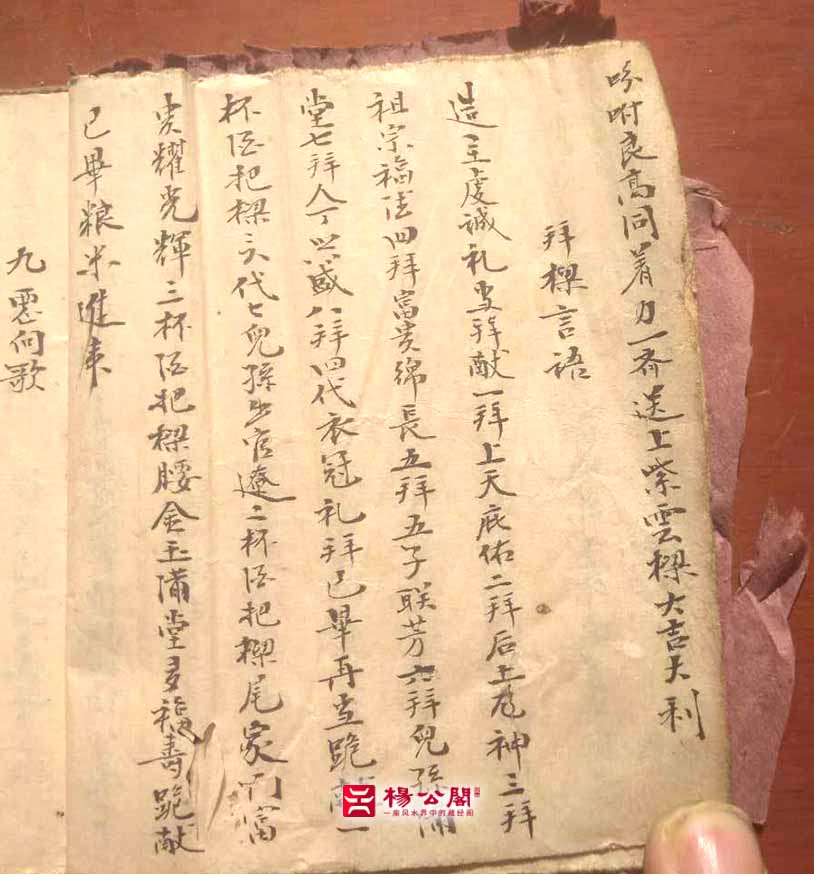 吩咐良高同着力一齐送上紫雲樑大吉大利
拜樑言語
造主虔誠礼当拜献一拜上天庇佑二拜后土龙神三拜
祖宗福德四拜富贵綿長五拜五子联芳六拜兒孫满
堂七拜人丁興盛八拜四代衣冠礼拜已畢再宜跪献一
杯酒把樑头代七兒孫出官遼二杯酒把樑尾家門富
贵耀光輝三杯酒把樑腰金玉满堂多福寿跪献
已畢粮米進库
九
歌
楊公閣
一座风水界中的藏经阁